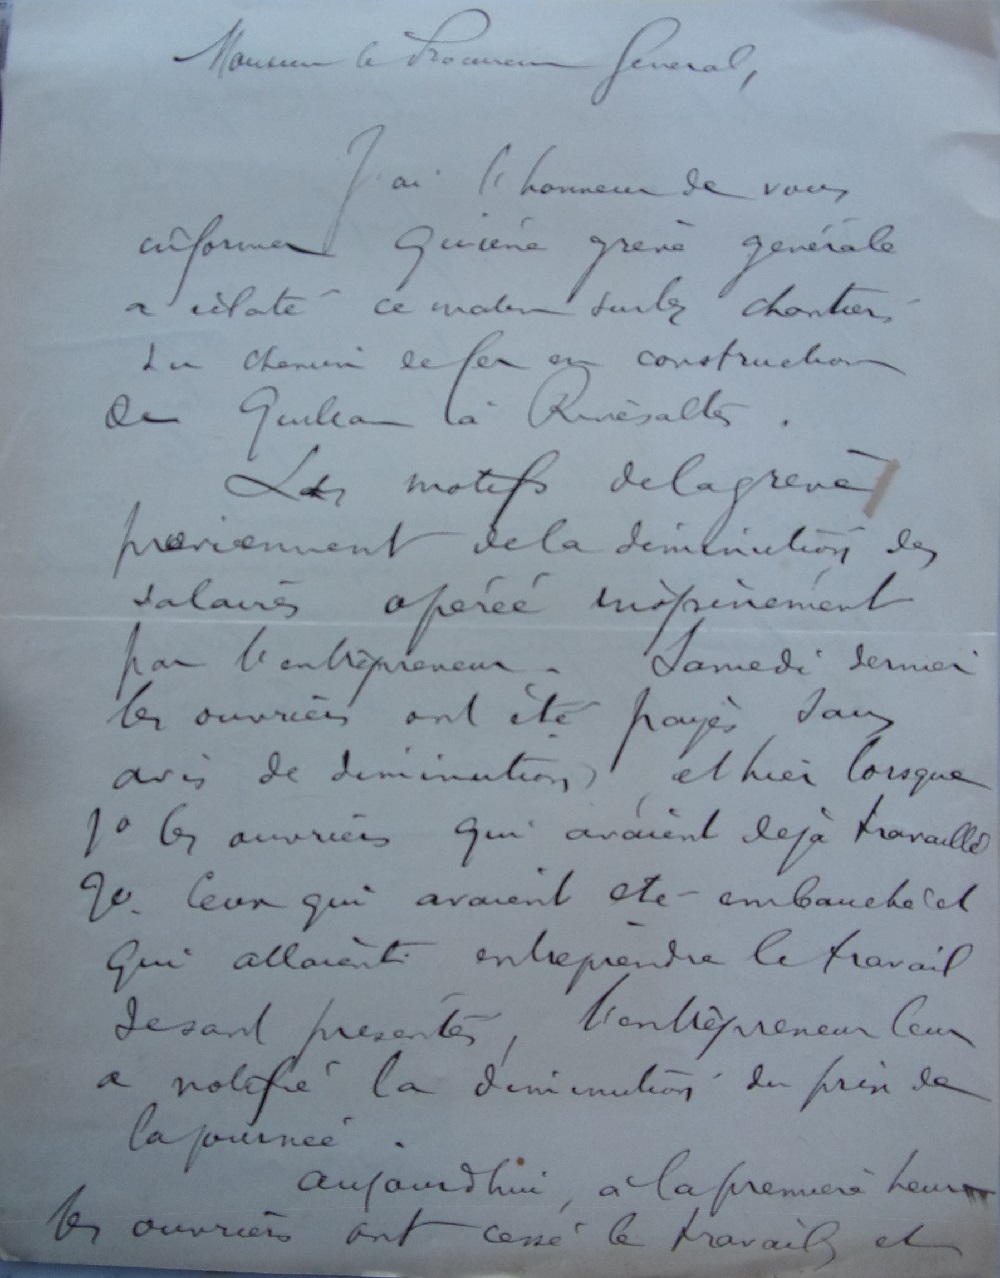 Monsieur le Procureur Général,
J'ai l'honneur de vous
informer qu'une grève générale
a éclaté ce matin sur les chantiers
du chemin de fer en construction
de Quillan à Rivesaltes.
Les motifs de la grève
proviennent de la diminution des
salaires opérée inopinément
par l'entrepreneur. Samedi dernier
les ouvriers ont été payés sans
avis de diminution, et hier lorsque
1o les ouvriers qui avaient dejà travaillé
2o. Ceux qui avaient été embauchés et
qui allaient entreprendre le travail
se sont présentés, l'entrepreneur leur
a notifié la diminution du prix de
la journée.
aujourd'hui, à la première heure
les ouvriers ont cessé le travail, et